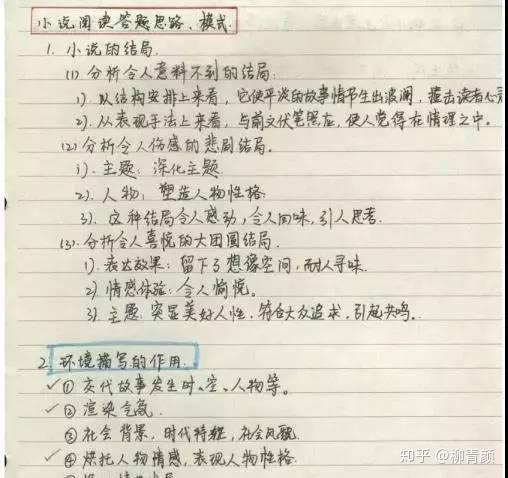 小说阅读答题思路、模式.
1. 小说的结局.
(1) 分析令人意料不到的结局:
1). 从结构安排上来看, 它使平淡的故事情节生出波澜, 撞击读者心灵
2). 从表现手法上来看, 与前文伏笔照应, 使人觉得在情理之中。
(2) 分析令人伤感的悲剧结局。
1). 主题: 深化主题.
2). 人物: 塑造人物性格.
3). 这种结局令人感动, 令人回味, 引人思考.
(3) 分析令人喜悦的大团圆结局.
1). 表达效果: 留下了想像空间, 耐人寻味.
2). 情感体验: 令人愉悦。
3). 主题: 突显美好人性, 符合大众追求, 引起共鸣。
2. 环境描写的作用.
✓① 交代故事发生时、空、人物等。
✓② 渲染气氛.
③ 社会背景, 时代特征, 社会风貌
✓④ 烘托人物情感, 表现人物性格.
知乎 @柳青颜